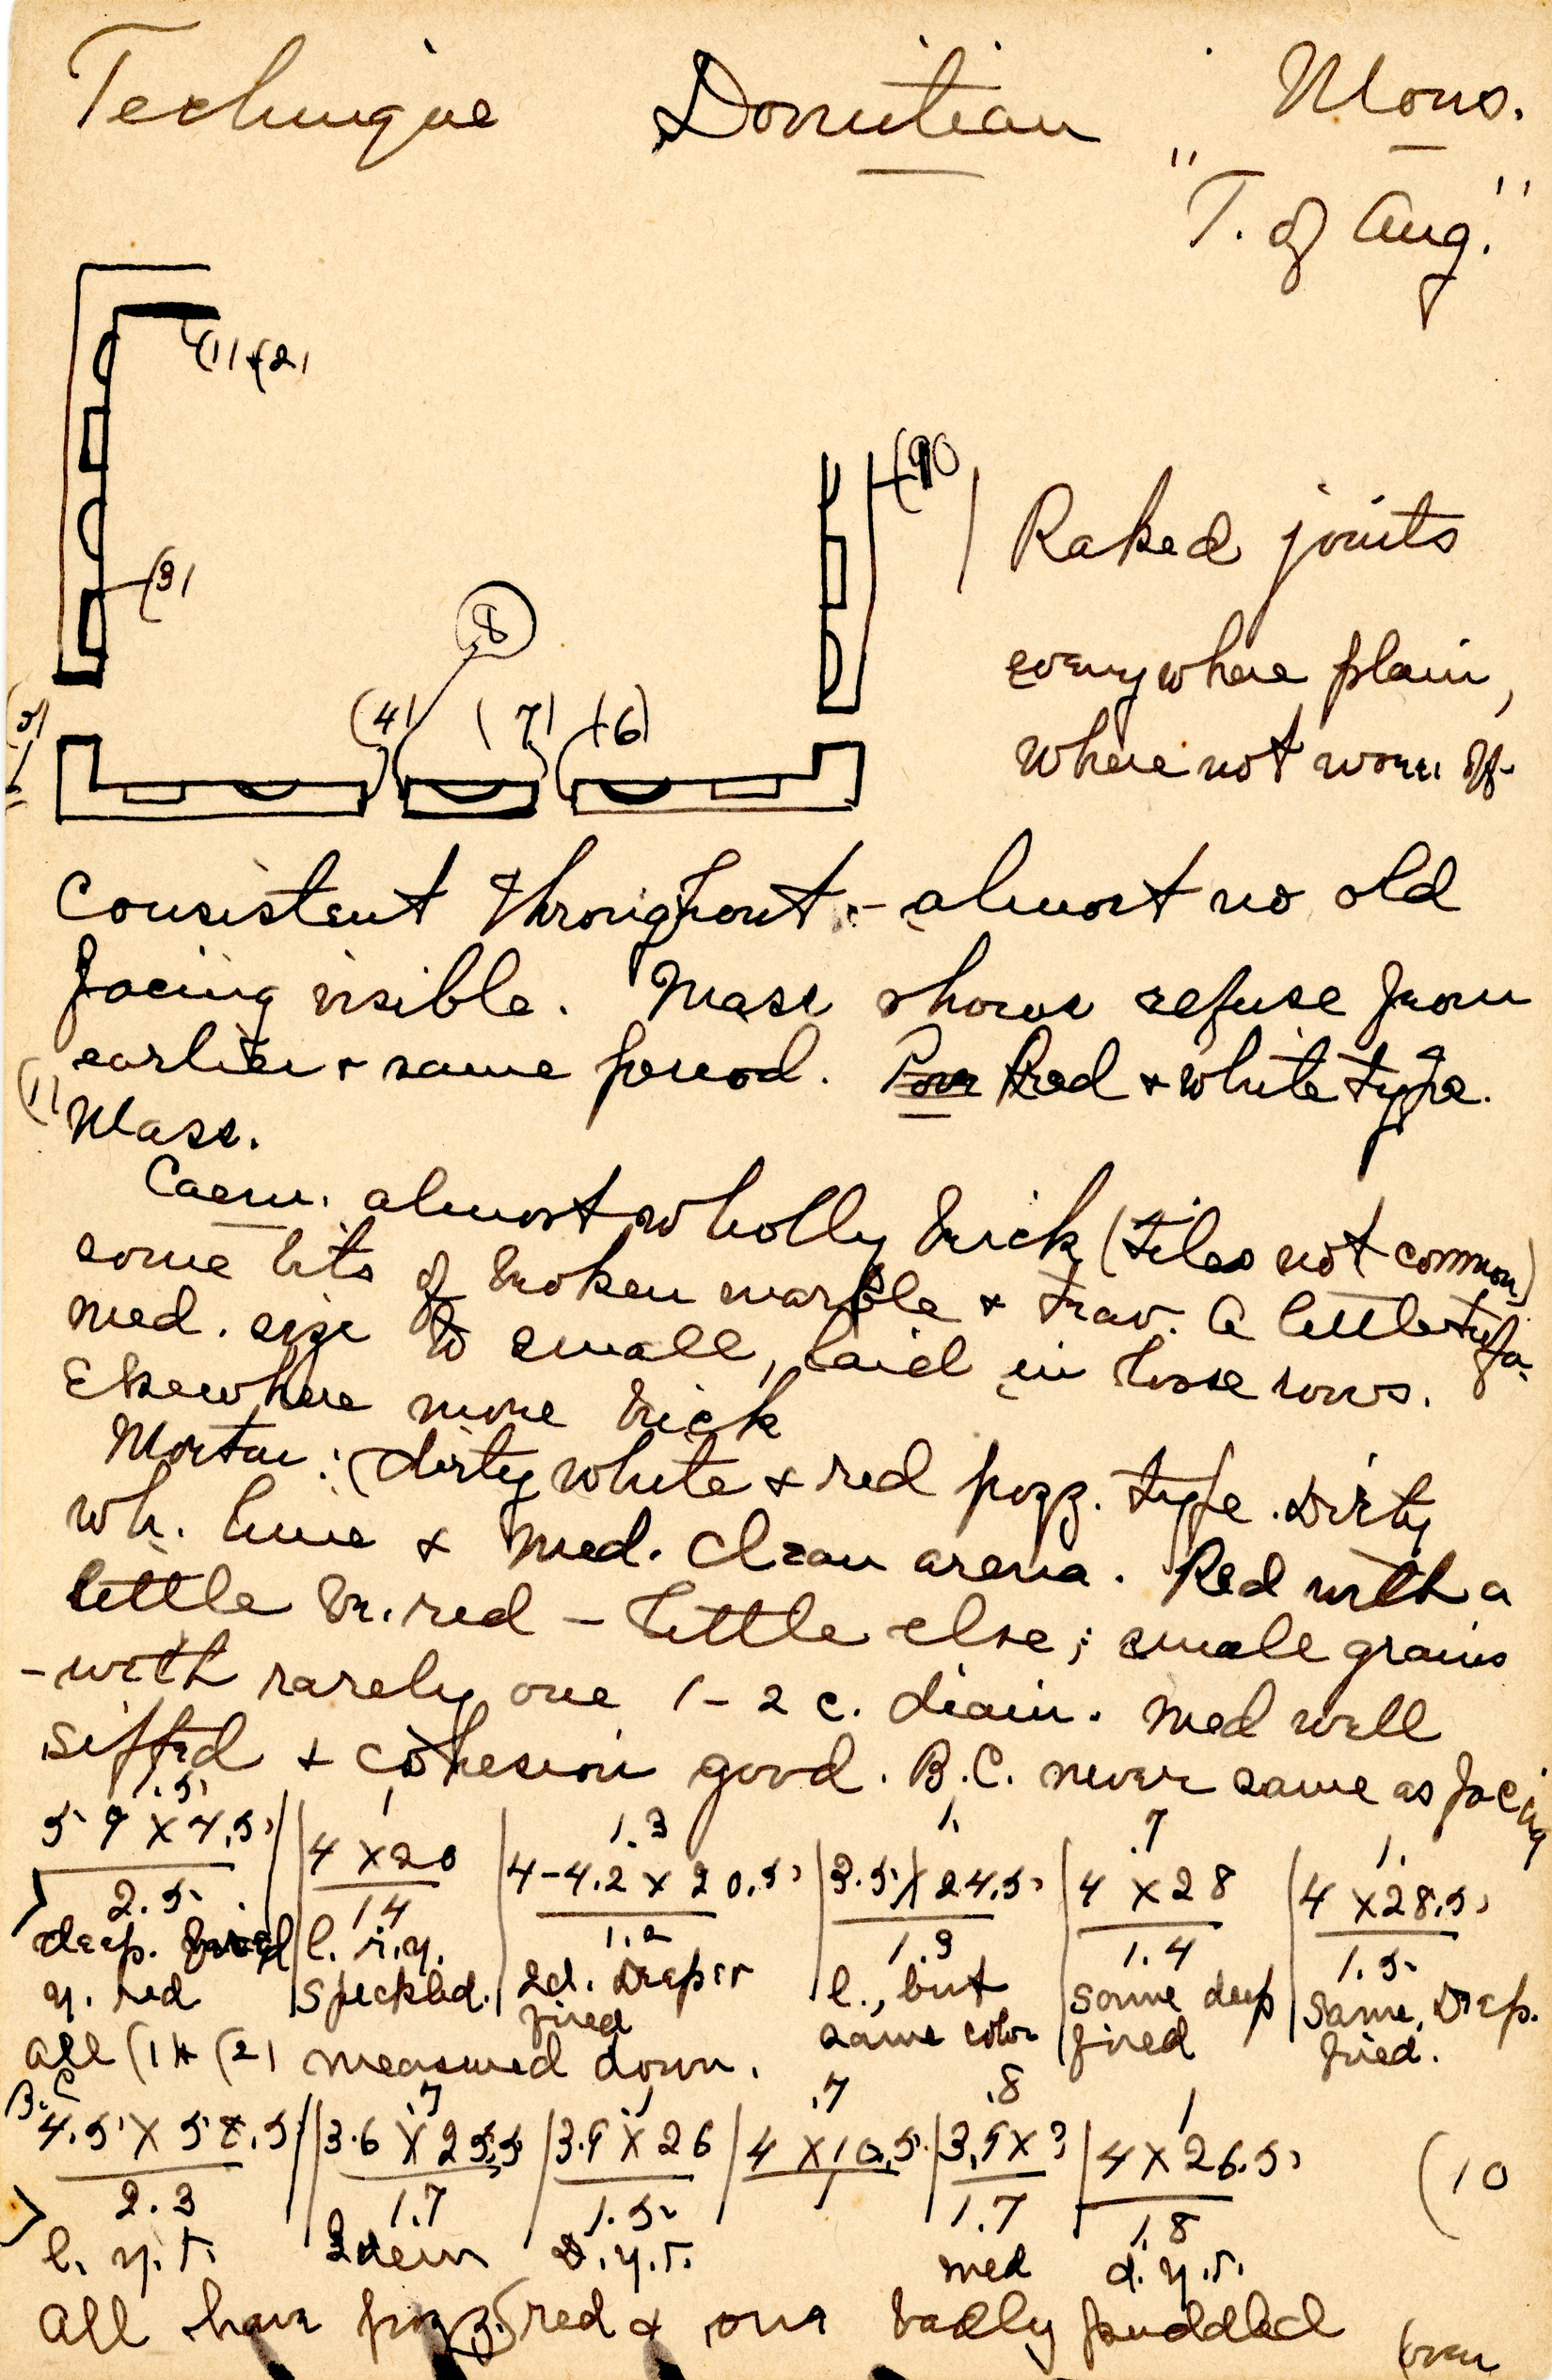 Technique Domitian Mons.
"T. of Aug."
(1) + (2)
(3)
(8)
(4) (7) (6)
(5)
Raked joints
everywhere plain,
where not worn off.
Consistent throughout - almost no old
facing visible. Mass shows refuse from
earlier + same period. Red + white type.
(1) Mass.
Caem. almost wholly brick (tiles not common)
some bits of broken marble + trav. A little tufa.
Med. size to small, laid in loose rows.
Elsewhere more brick
Mortar: (dirty white + red pozz. type. Dirty
wh. lime & med. clean arena. Red with a
little br. red - little else; small grains
- with rarely one 1-2 c. diam. Med well
sifted + cohesion good. B.C. never same as facing
1.5 1 1.3 1. .7 1.
4 x 20 | 4-4.2 x 20.5 | 3.5 x 24.5 | 4 x 28 | 4 x 28.5
2.5 14 1.2 1.3 1.4 1.5
deep. fired | l. r.y. | 2d. Deeper | l., but | some deep | same. Deep.
y. red | speckled. | fired | same color | fired | fired.
All (1) + (2) measured down.
B.C. .7 1 .7 .8 1
3.6 x 25.5 | 3.9 x 26 | 4 x 10.5 | 3.9 x ? | 4 x 26.5 (10
2.3 1.7 1.5 1 1.7 1.8
l. y.r. Idem D.y.r. med d.y.r.
All have pozz. (red & one badly puddled (over